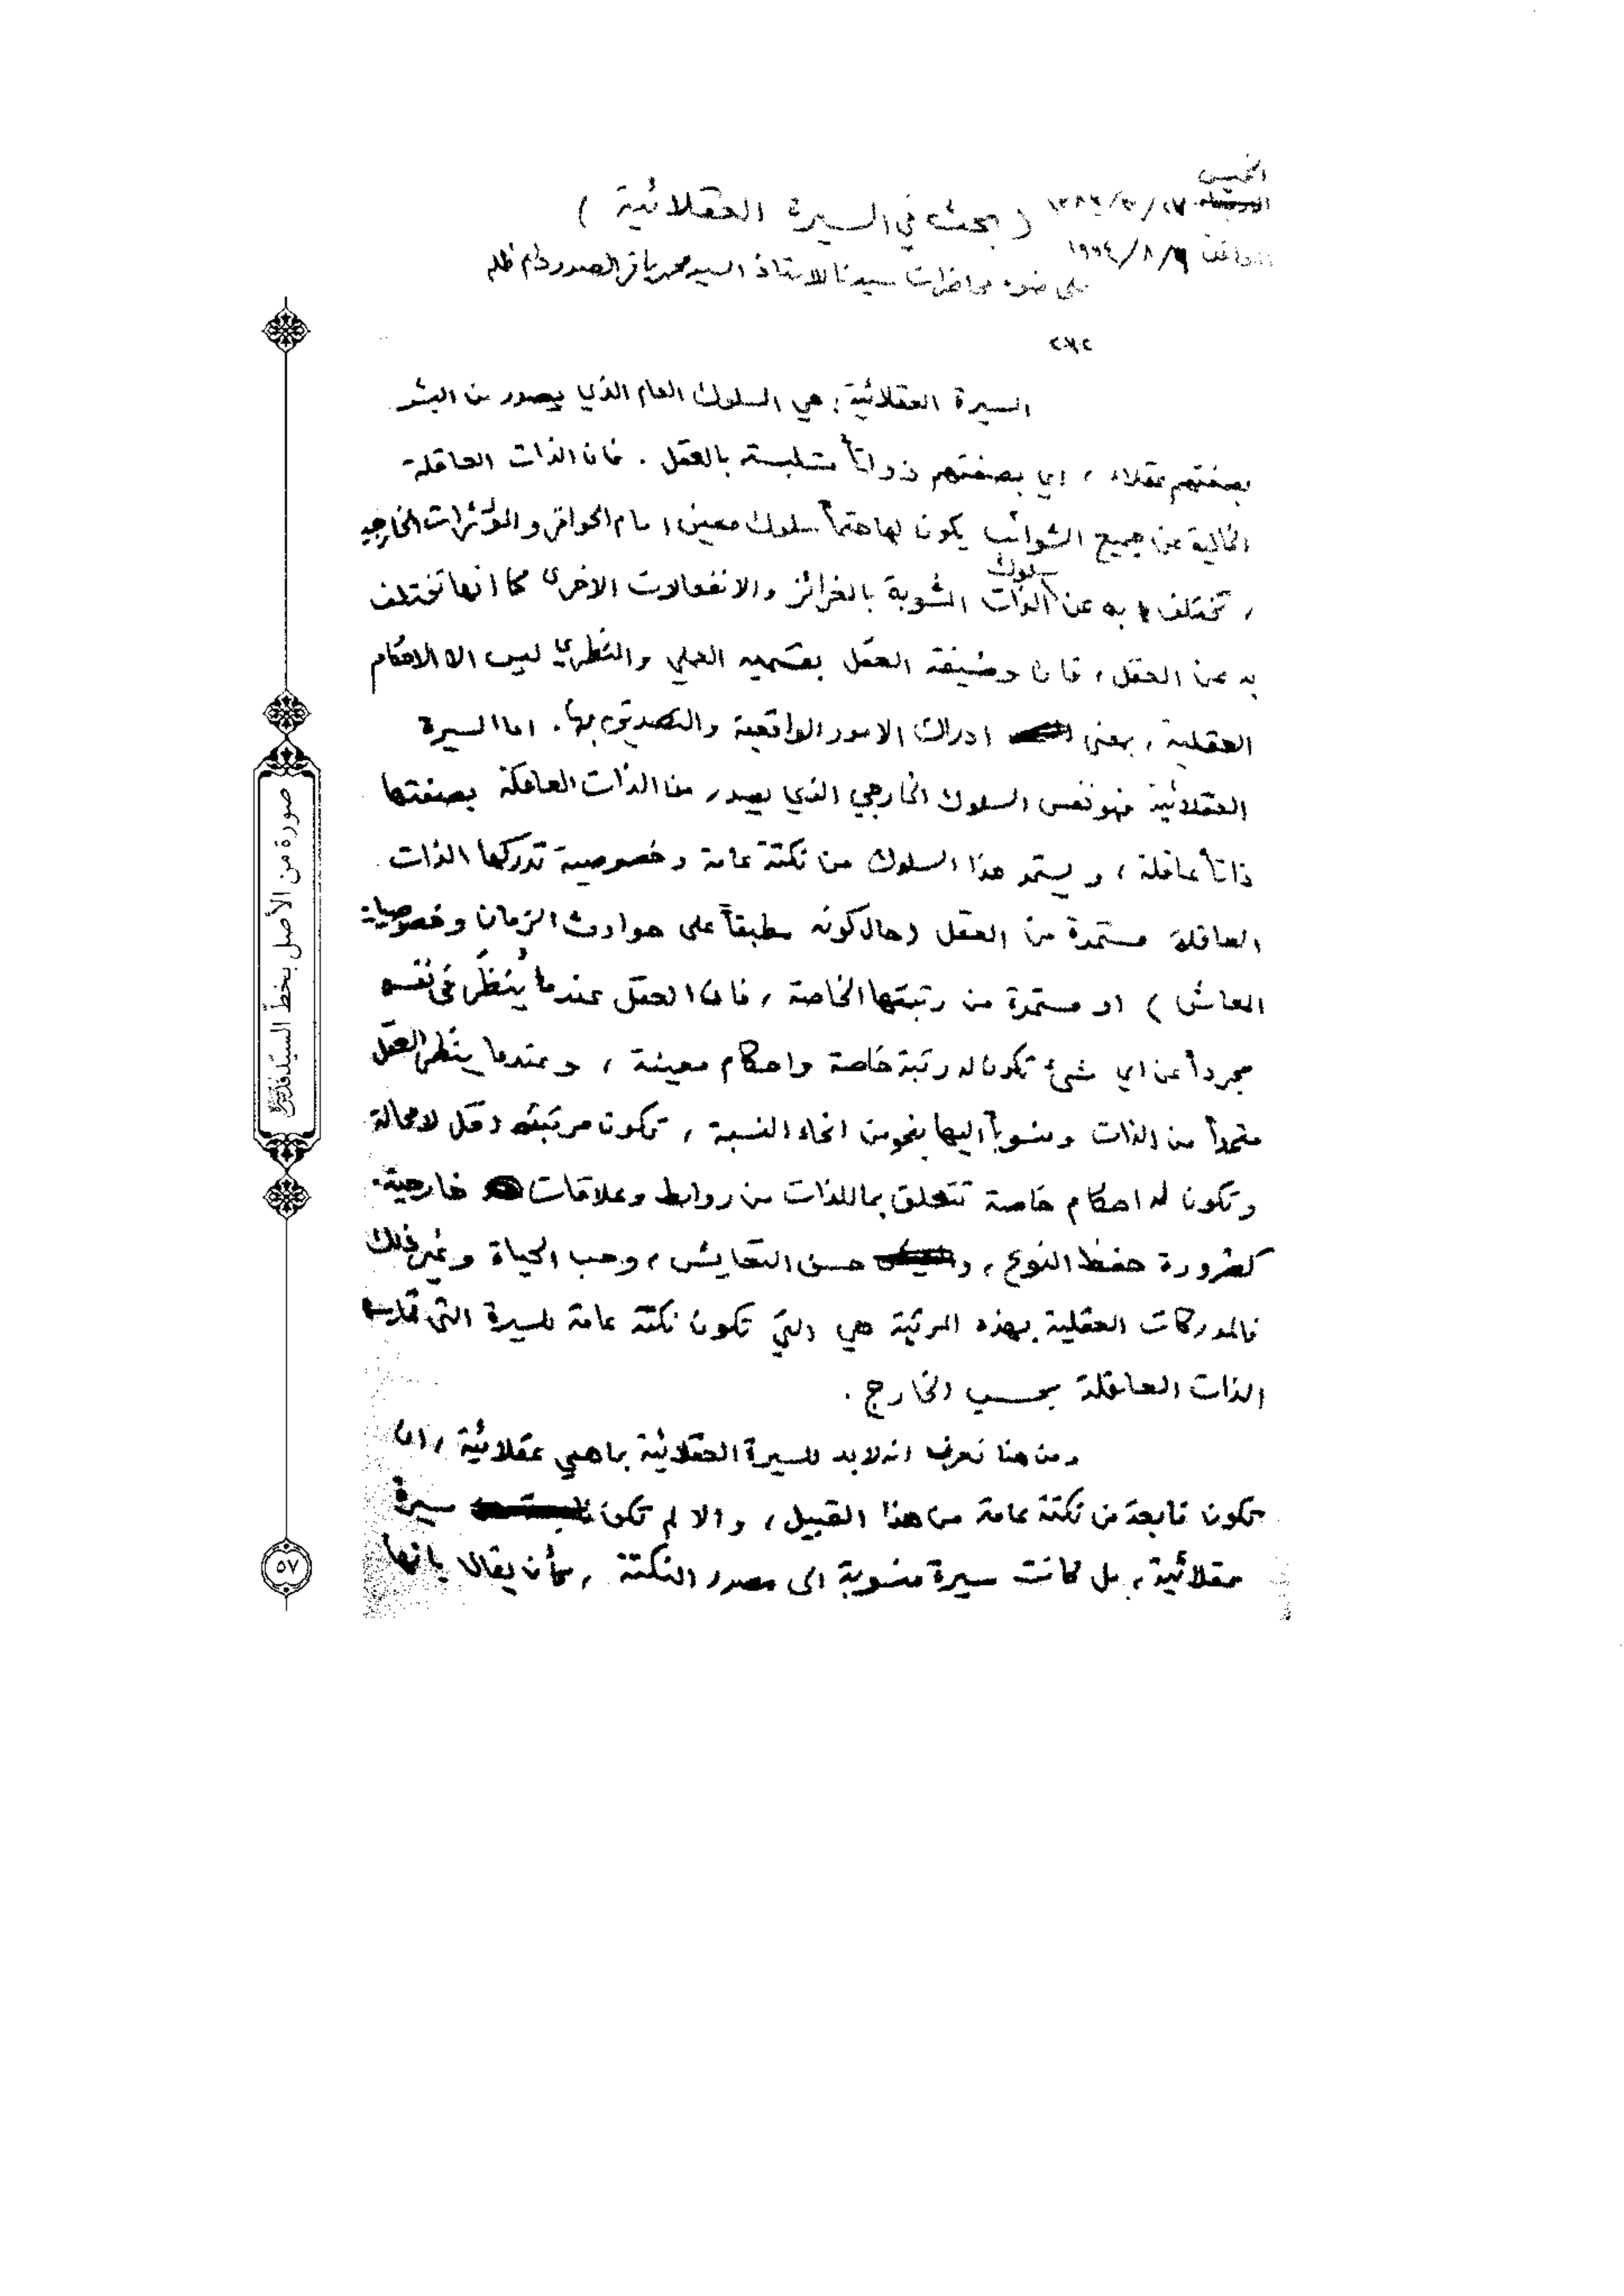 الخميس
١٣٨٤/٣/٢٧ ( بحث في السيرة العقلائية )
الموافق ١٩٦٤/٨/٦
على ضوء محاظرات سيدنا الاستاذ السيد محمد باقر الصدر دام ظله
السيرة العقلائية : هي السلوك العام الذي يصدر من البشر
بصفتهم عقلاء ، اي بصفتهم ذواتاً متلبسة بالعقل . فان الذات العاقلة
الخالية عن جميع الشوائب يكون لها حتماً سلوك معين امام الحوافز والمؤثرات الخارجية
، تختلف به عن سلوك الذات المشوبة بالغرائز والانفعالات الاخرى كما انها تختلف
به عن العقل ، فان وضيفة العقل بقسميه العملي والنظري ليس الا الاحكام
العقلية ، بمعنى ادراك الامور الواقعية والتصديق بها . اما السيرة
العقلائية فهو نفس السلوك الخارجي الذي يصدر من الذات العاقلة بصفتها
ذاتاً عاقلة ، و يستمد هذا السلوك من نكتة عامة وخصوصية تدركها الذات
العاقلة مستمدة من العقل ( حال كونه مطبقاً على حوادث الزمان وخصوصيات
المعاش ) او مستمدة من رتبتها الخاصة ، فان العقل عندما يُنظَر في نفسه
مجرداً عن اي شيء تكون له رتبة خاصة واحكام معينة ، وعندما ينظر العقل
من الذات ومنسوباً اليها بنحو من انحاء النسبة ، تكون مرتبته اقل لا محالة
وتكون له احكام خاصة تتعلق بما للذات من روابط وعلاقات خارجية .
كضرورة حفظ النوع ، و حسن التعايش ، وحب الحياة وغير ذلك
فالمدركات العقلية بهذه المرتبة هي التي تكون نكتة عامة للسيرة التي تمارسها
الذات العاقلة بحسب الخارج .
ومن هنا نعرف انه لابد للسيرة العقلائية بما هي عقلائية ، ان
تكون نابعة من نكتة عامة من هذا القبيل ، والا لم تكن سيرة
عقلائية ، بل كانت سيرة منسوبة الى مصدر النكتة ، كأن يقال بانها
صورة من الأصل بخطّ السيّد قدس سره
٥٧